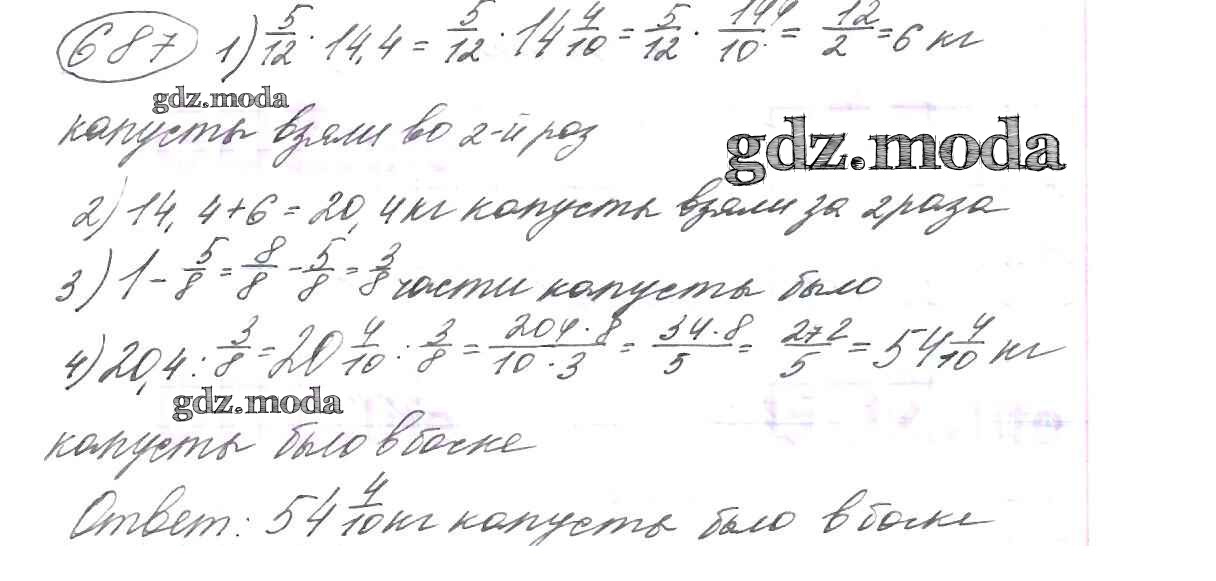 687 1) 5/12 · 14,4 = 5/12 · 14 4/10 = 5/12 · 144/10 = 12/2 = 6 кг
gdz.moda
капусты взяли во 2-й раз
gdz.moda
2) 14,4+6 = 20,4кг капусты взяли за 2 раза
3) 1 - 5/8 = 8/8 - 5/8 = 3/8 части капусты было
4) 20,4 : 3/8 = 20 4/10 : 3/8 = 204·8/10·3 = 34·8/5 = 272/5 = 54 4/10 кг
gdz.moda
капусты было в бочке
Ответ: 54 4/10 кг капусты было в бочке